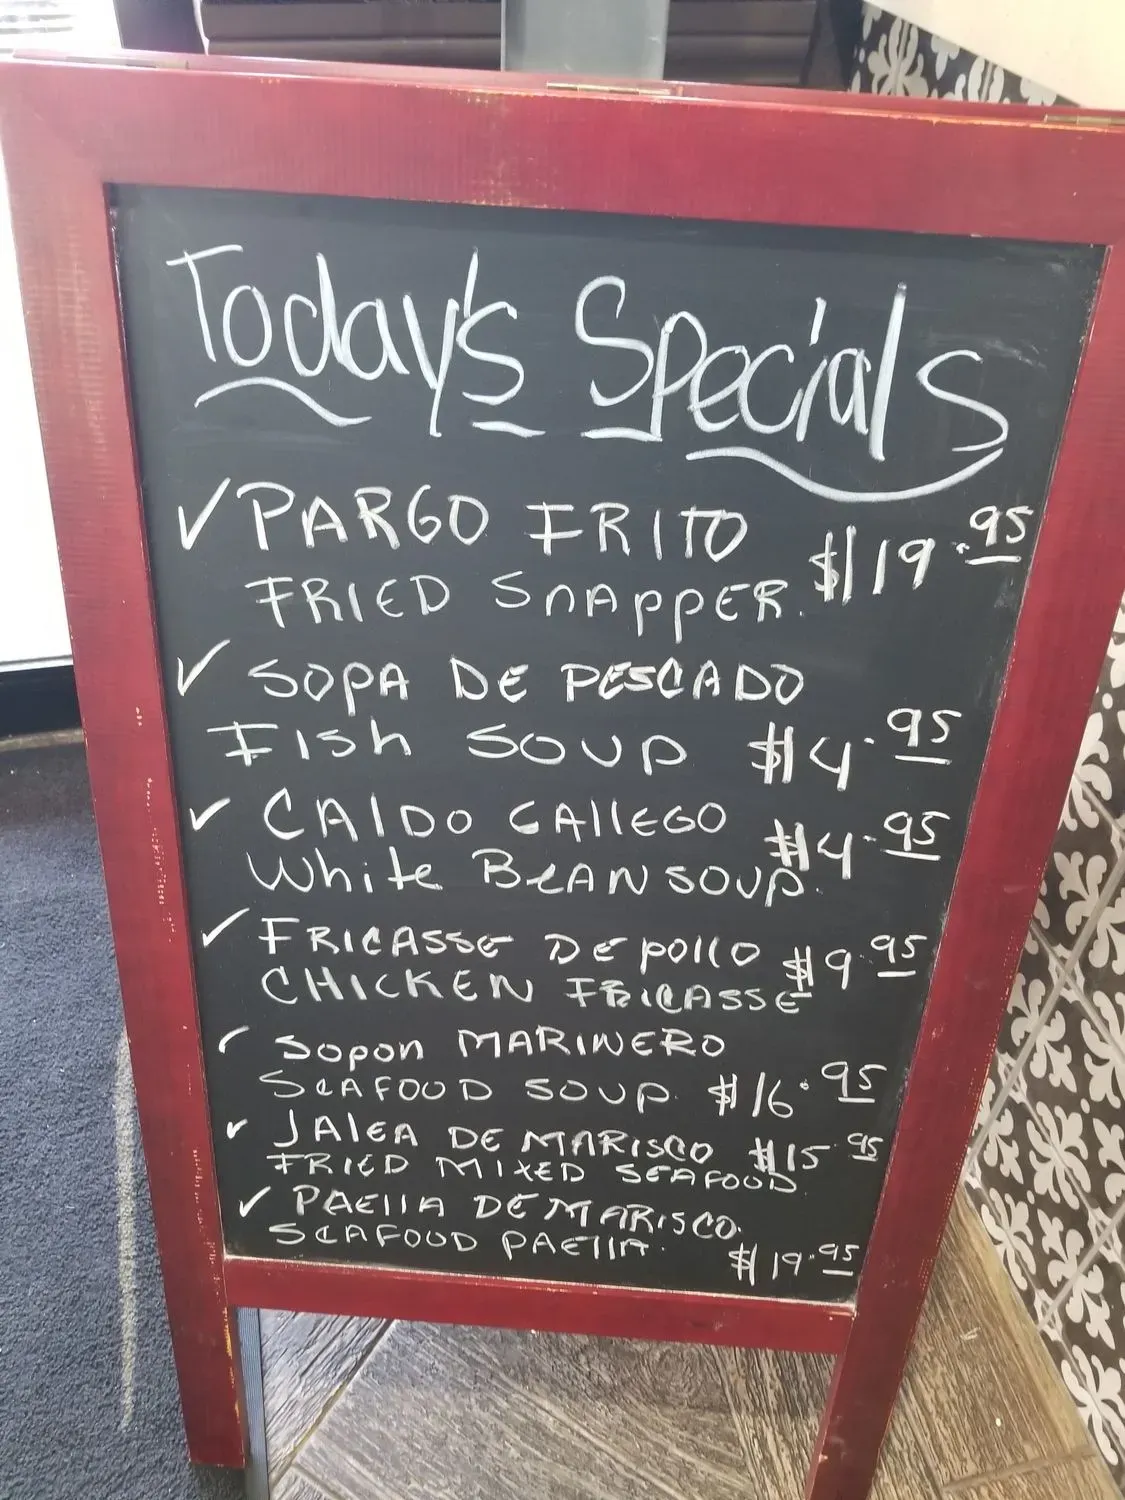 Today's Specials
✓ PARGO FRITO $19.95
FRIED SNAPPER.
✓ SOPA DE PESCADO
FISh SOUP $4.95
✓ CAlDO GAllEGO $4.95
White BEAN SOUP.
✓ FRICASSE DE POllO $9.95
CHICKEN FRICASSE
✓ SOPON MARINERO
SEAFOOD SOUP. $16.95
✓ JAlEA DE MARISCO $15.95
FRIED MIXED SEAFOOD.
✓ PAEllA DE MARISCO.
SEAFOOD PAEllA. $19.95